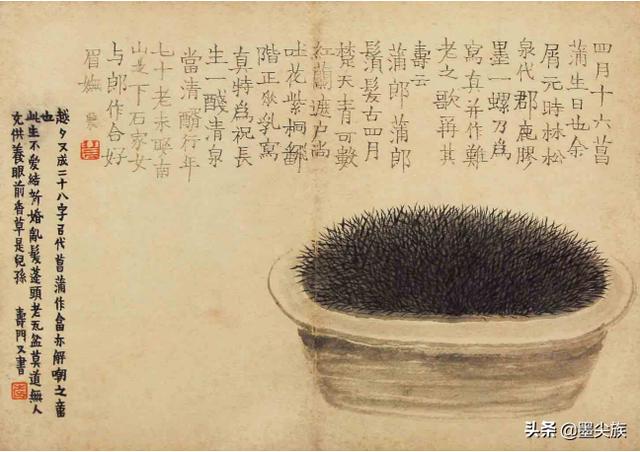 四月十六菖
蒲生日也余
屑元時林松
泉代郡鹿膠
墨一螺乃爲
寫真并作難
老之歌再其
壽云
蒲郎蒲郎
鬚髮古四月
楚天青可數
紅蘭遮户尚
吐花紫桐
階正乳寫
真特為祝長
生一醆清泉
當清醑行年
七十老未娶南
山之下石家女
与郎作合好
眉嫵 農
越夕又成二十八字代菖蒲作畣亦解嘲之意
也
此生不爱結新婚亂髮蓬頭老瓦盆莫道無人
充供養眼前香草是兒孫 壽門又書
头条 @墨尖族